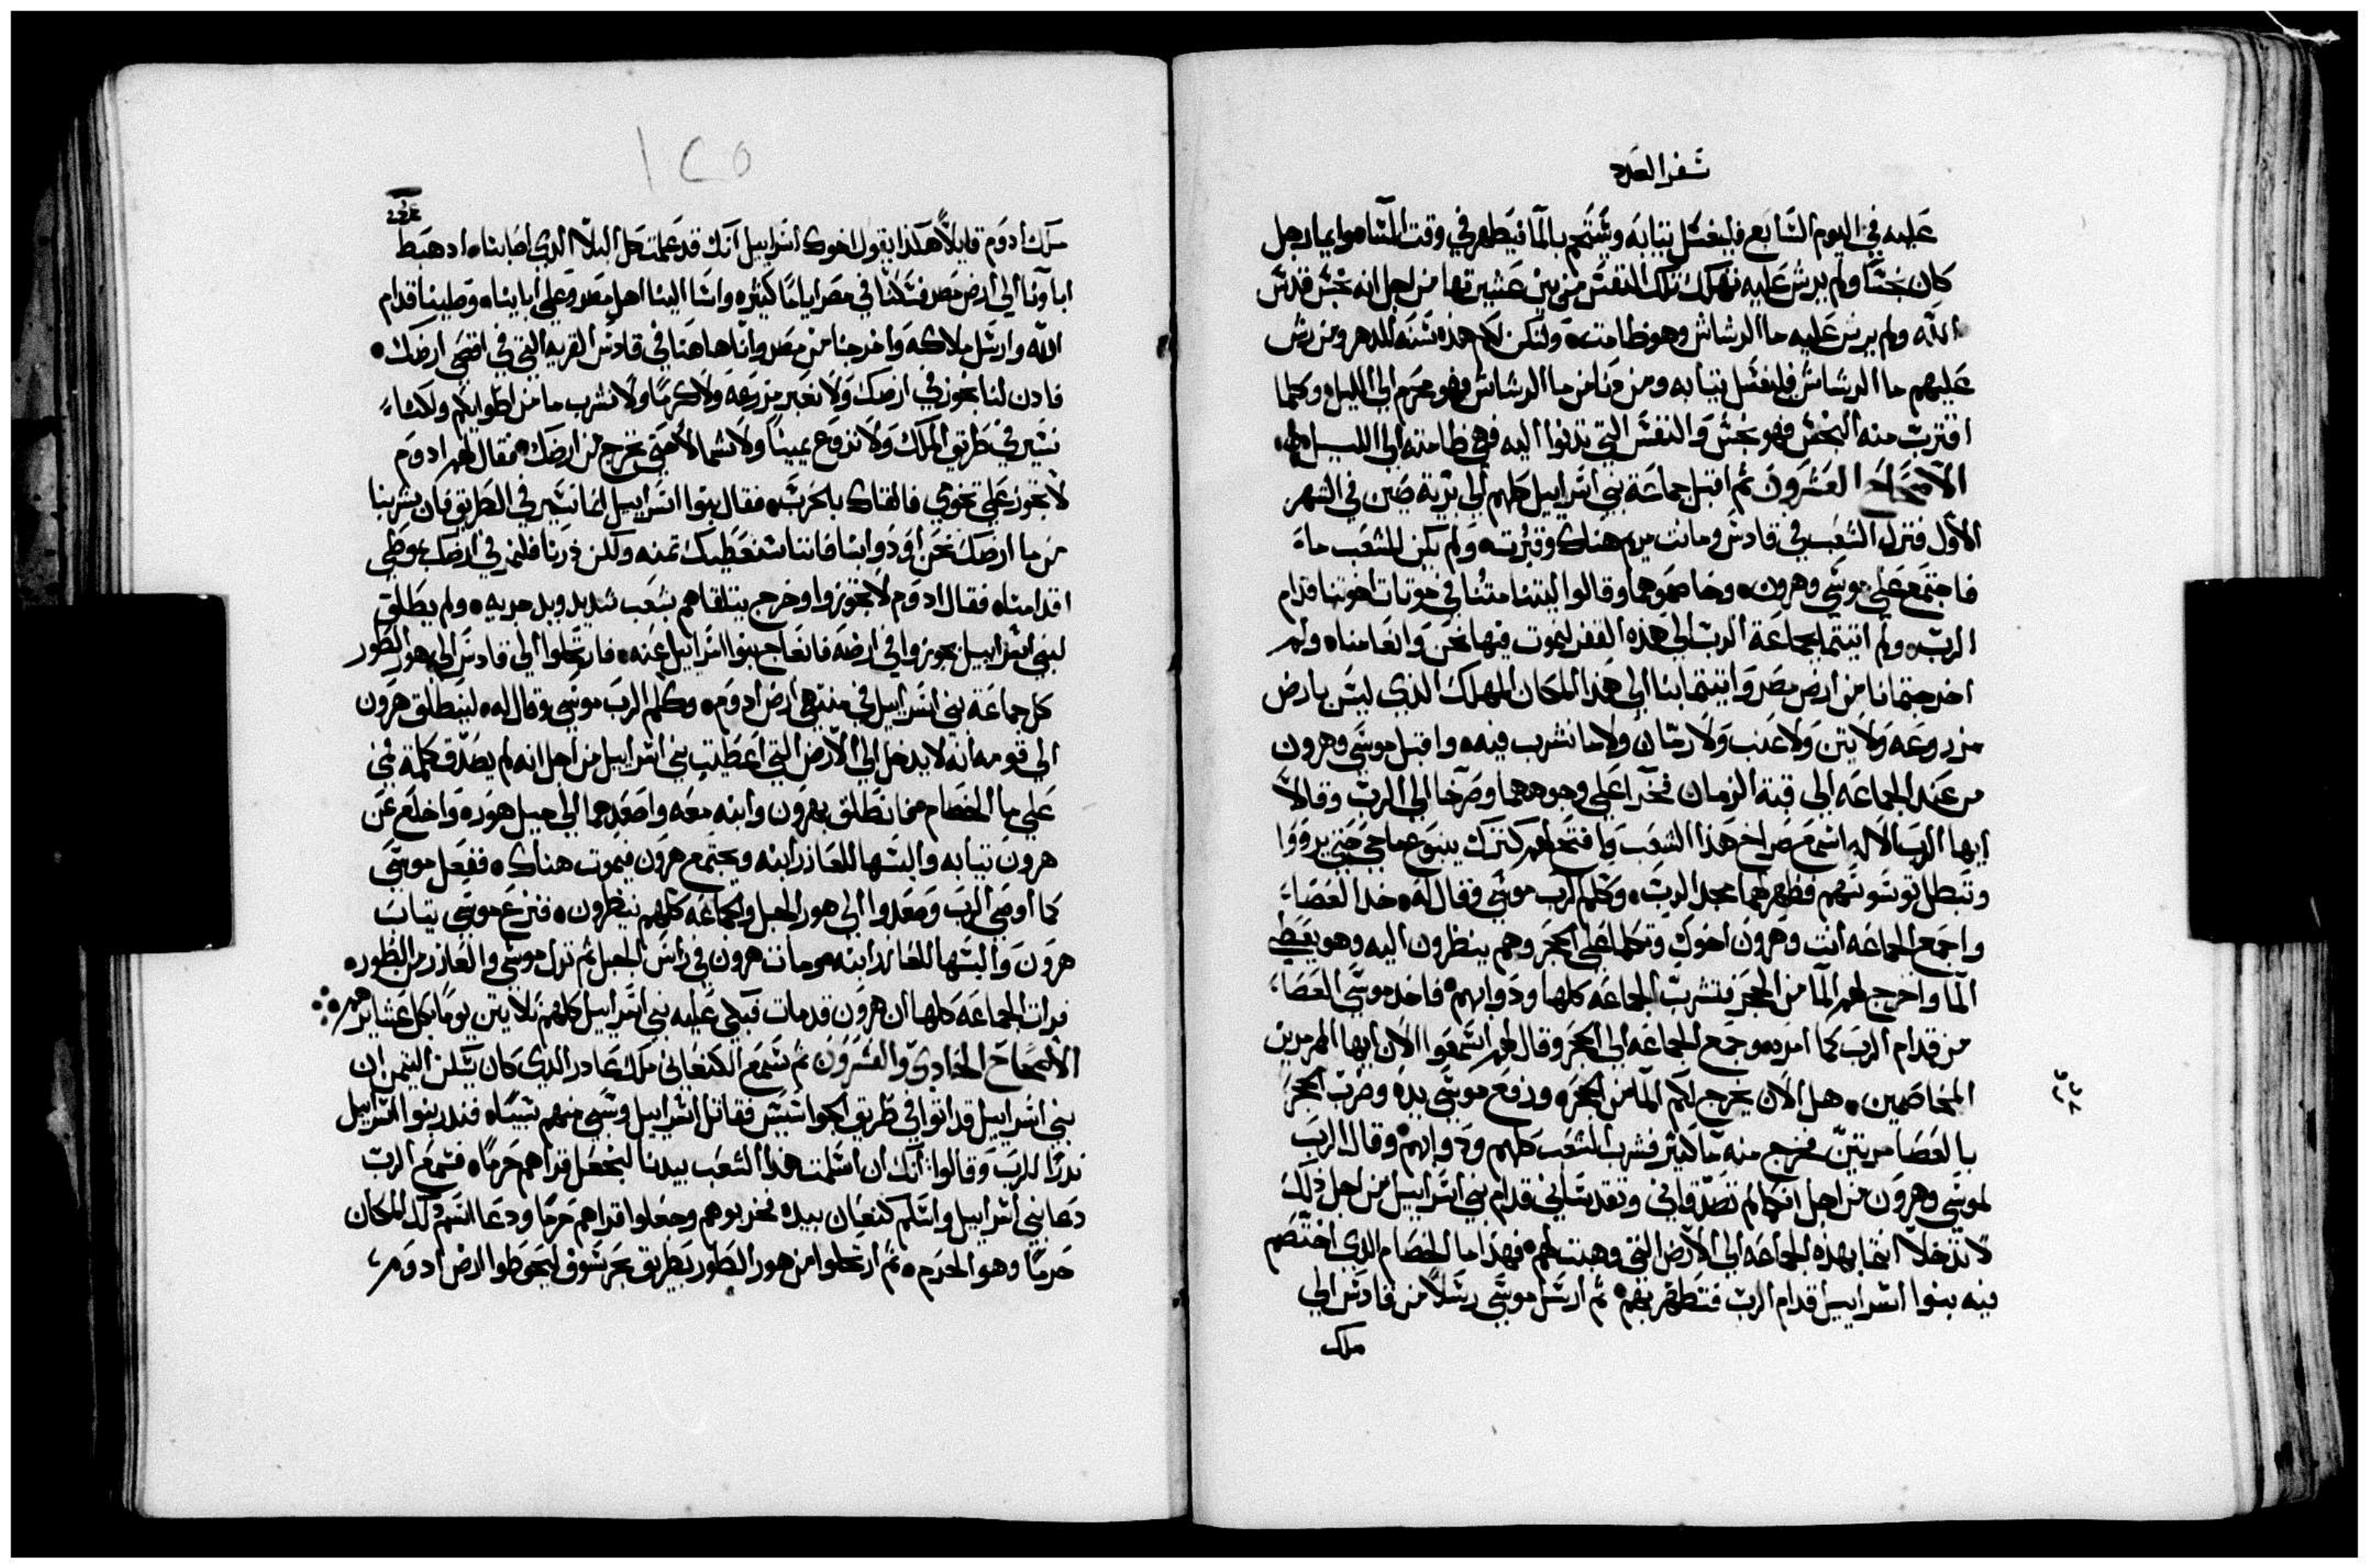 سفر العدد
عليه في اليوم السابع فليغسل ثيابه ويستحم بالما فيطهر في وقت المسا هوايما رجل
كان نجسا ولم يرش عليه تهلك تلك النفس من بين عشيرتها من اجل انه نجس قدس
الله ولم يرش عليه ما الرشاش وهو طامت ولتكن لكم هذه سنه للدهر ومن رش
عليهم ما الرشاش فليغسل ثيابه ومن دنا من ما الرشاش فهو محرم الي الليل وكلما
اقترب منه النجس فهو نجس والنفس التي تدنوا اليه فهي طامته الي الليل
الاصحاح العشرون ثم اقبل جماعة بني اسراييل كلهم الي برية صين في الشهر
الاول فنزل الشعب في قادس وماتت مريم هناك وقبرت ولم يكن للشعب ماء
فاجتمع علي موسي وهرون وخاصموهما وقالوا ليتنا متنا في موتات اخوتنا قدام
الرب ولم اتيتما بجماعة الرب الي هذه القفر ليموت فيها نحن وانعامنا ولم
اخرجتمانا من ارض مصر واتيتما بنا الي هذا المكان المهلك الذي ليس بارض
مزروعه ولا تين ولا عنب ولا رمان ولا ما نشرب فيه واقبل موسي وهرون
من عند الجماعه الي قبة الزمان فخرا علي وجوههما وصرخا الي الرب وقالا
ايها الرب الاله اسمع صراخ هذا الشعب وافتح لهم كنزك ينبوع ما حي حتي يرووا
وتبطل توسوسهم فظهر لهما مجد الرب وكلم الرب موسي فقال له خد العصاء
واجمع الجماعه انت وهرون اخوك وتكلما علي الحجر وهم ينظرون اليه وهو يعطي
الما واخرج لهم الما من الحجر فتشرب الجماعه كلها ودوابهم فاخد موسي العصاء
من قدام الرب كما امره وجمع الجماعه الي الحجر وقال لهم اسمعوا الان ايها المرمرين
المخاصمين هل الان يخرج لكم الما من الحجر ورفع موسي يده وضرب الحجر
بالعصا مرتين فخرج منه ما كثير فشرب الشعب كلهم ودوابهم وقال الرب
لموسي وهرون من اجل انكما لم تصدقاني وتقدساني قدام بني اسراييل من اجل ذلك
لا تدخلا انتما بهذه الجماعه الي الارض التي وهبت لهم فهذا ما الخصام الذي اختصم
فيه بنوا اسراييل قدام الرب فتطهر بهم ثم ارسل موسي رسلا من قادس الي
ملك
١٢٥
ملك ادوم قايلا هكذا يقول اخوك اسراييل انك قد علمت كل البلا الذي اصابنا اد هبط
اباونا الي ارض مصر فسكنا في مصر اياما كثيره واسا الينا اهل مصر وعلي ابايناه وصلينا قدام
الله وارسل ملاكه واخرجنا من مصر وانا هاهنا في قادس القريه التي في اقصي ارضك
فادن لنا نجوز في ارضك ولا نعبر مزرعه ولا كرما ولا نشرب ما من اطوايكم ولكنا
نسير في طريق الملك ولا نروع يمينا ولا شمالا حتي نخرج من ارضك فقال لهم ادوم
لا تجوز علي تخومي فالقاك بالحرب فقال بنوا اسراييل انما نسير في الطريق فان شربنا
من ما ارضك نحن او دوابنا فاننا سنعطيك تمنه ولكن ذرنا فلنمر في ارضك بوطي
اقدامنا فقال ادوم لا تجوزوا وخرج يتلقاهم بشعب شديد وبيد حربه ولم يطلق
لبني اسراييل يجوزوا في ارضه فانعاج بنوا اسراييل عنه فارتحلوا الي قادس الي هور الطور
كل جماعة بني اسراييل في منتهي ارض ادوم وكلم الرب موسي وقال له لينطلق هرون
الي قومه انه لا يدخل الي الارض التي اعطيت بني اسراييل من اجل انه لم يصدق كلمة فمي
علي ما الخصام فانطلق بهرون وابنه معه واصعدهما الي جبل هور واخلع عن
هرون ثيابه والبسها للعازر ابنه ويجتمع هرون فيموت هناك ففعل موسي
كما اوصي الرب وصعدوا الي هور الجبل والجماعه كلهم ينظرون فنزع موسي ثياب
هرون والبسها للعازر ابنه ومات هرون في راس الجبل ثم نزل موسي والعازر من الطور
فرات الجماعه كلها ان هرون قد مات فبكي عليه بني اسراييل كلهم ثلاتين يوما بكل عشايرهم
الاصحاح الحادي والعشرون ثم سمع الكنعاني ملك عادر الذي كان يسكن التيمن ان
بني اسراييل قد اتوا في طريق الجواسيس فقاتل اسراييل وسبي منهم سبيا فندر بنوا اسراييل
ندرا للرب وقالوا انك ان اسلمت هذا الشعب بيدنا لنجعل قراهم حرما فسمع الرب
دعا بني اسراييل واسلم كنعان بيده فخربوهم وجعلوا قراهم حرما ودعا اسم ذلك المكان
حرما وهو الحرم ثم ارتحلوا من هور الطور بطريق بحر سوف ليحوطوا ارض ادوم